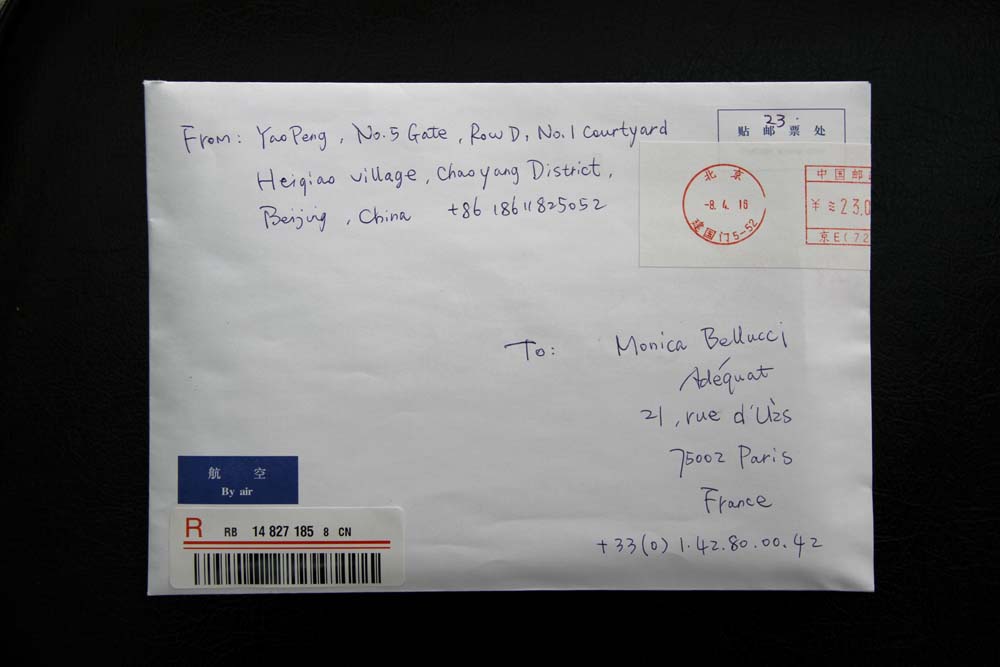 From: YaoPeng, No.5 Gate, Row D, No.1 Courtyard
Heiqiao village, Chaoyang District,
Beijing, China +86 18611825052
23.
贴 邮 票 处
北 京
-8. 4. 16
建国门5-52
中 国 邮
¥ ≥23.0
京E(72
To: Monica Bellucci
Adéquat
21, rue d'Uzs
75002 Paris
France
+33(0) 1.42.80.00.42
航 空
By air
R RB 14 827 185 8 CN